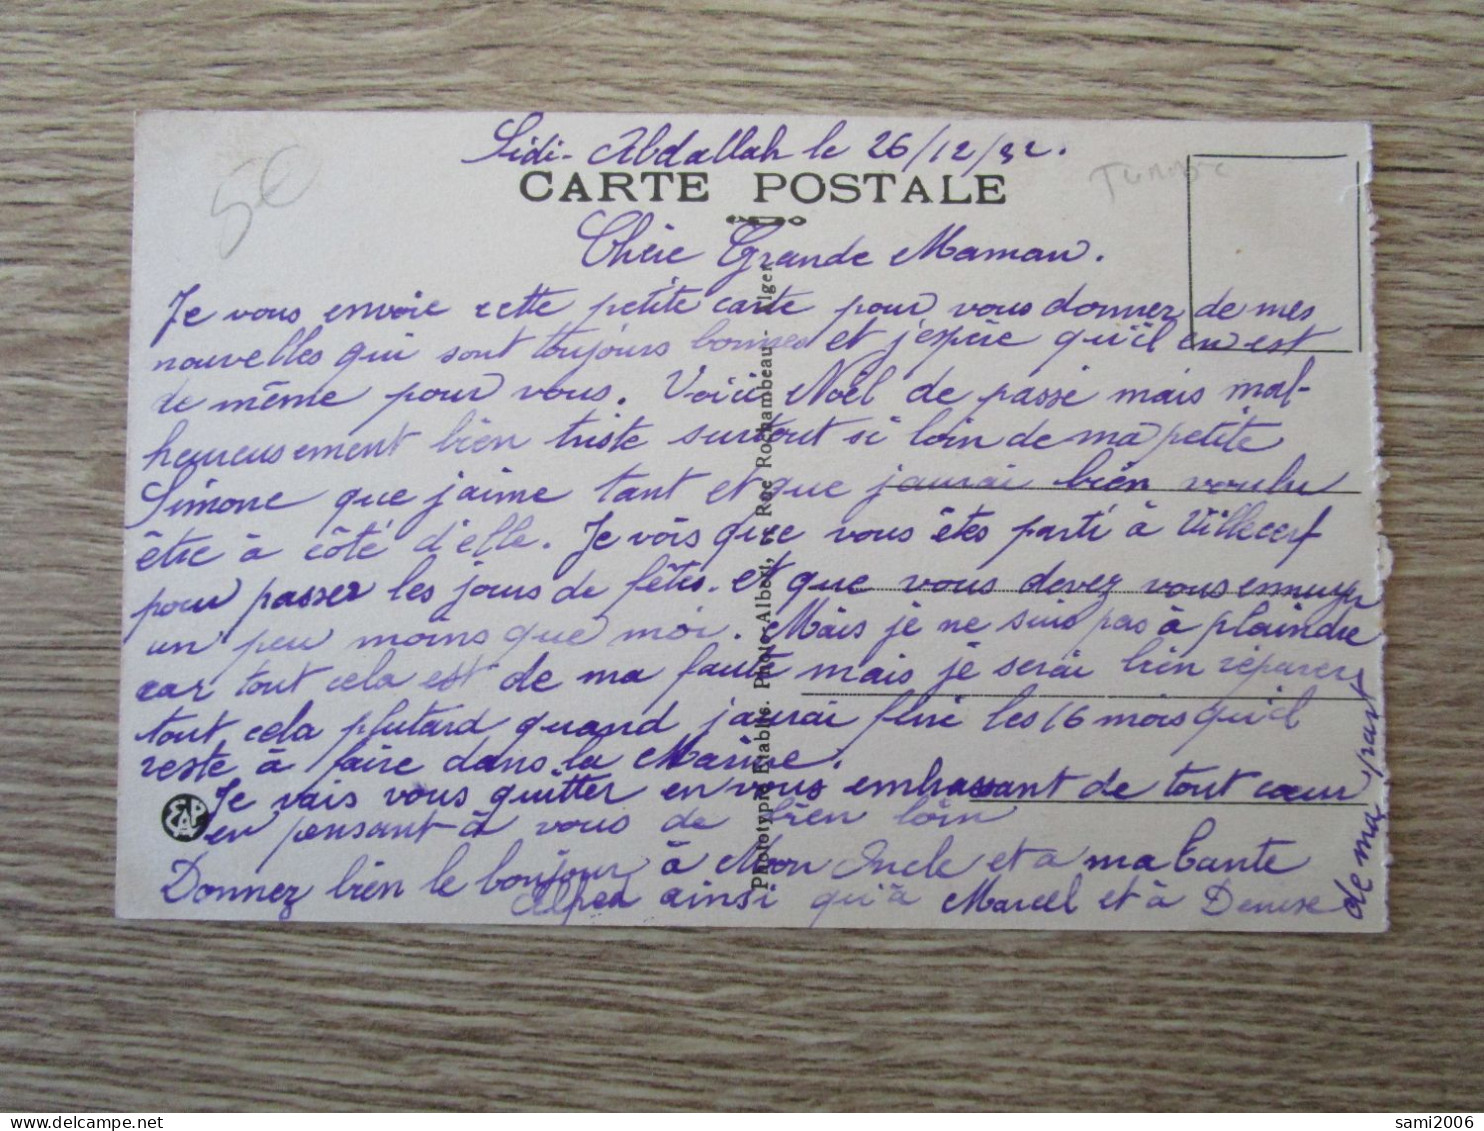 Sidi-Abdallah le 26/12/32.
5€
CARTE POSTALE
Chère Grande Maman.
Je vous envoie cette petite carte pour vous donner de mes
nouvelles qui sont toujours bonnes et j'espère qu'il en est
de même pour vous. Voici Noël de passé mais mal-
heureusement bien triste surtout si loin de ma petite
Simone que j'aime tant et que j'aurai bien voulu
être à côté d'elle. Je vois que vous êtes parti à Villecerf
pour passer les jours de fêtes. et que vous devez vous ennuyer
un peu moins que moi. Mais je ne suis pas à plaindre
car tout cela est de ma faute mais je serai bien réparer
tout cela plutard quand j'aurai fini les 16 mois qu'il
reste à faire dans la Marine.
Je vais vous quitter en vous embrassant de tout cœur
en pensant à vous de bien loin
Donnez bien le bonjour à Mon Oncle et a ma Tante
ainsi qu'à Marcel et à Denise
de ma part
Phototypie Etablis. Photo-Albert, Rue Rochambeau - Alger
EAP
sami2006